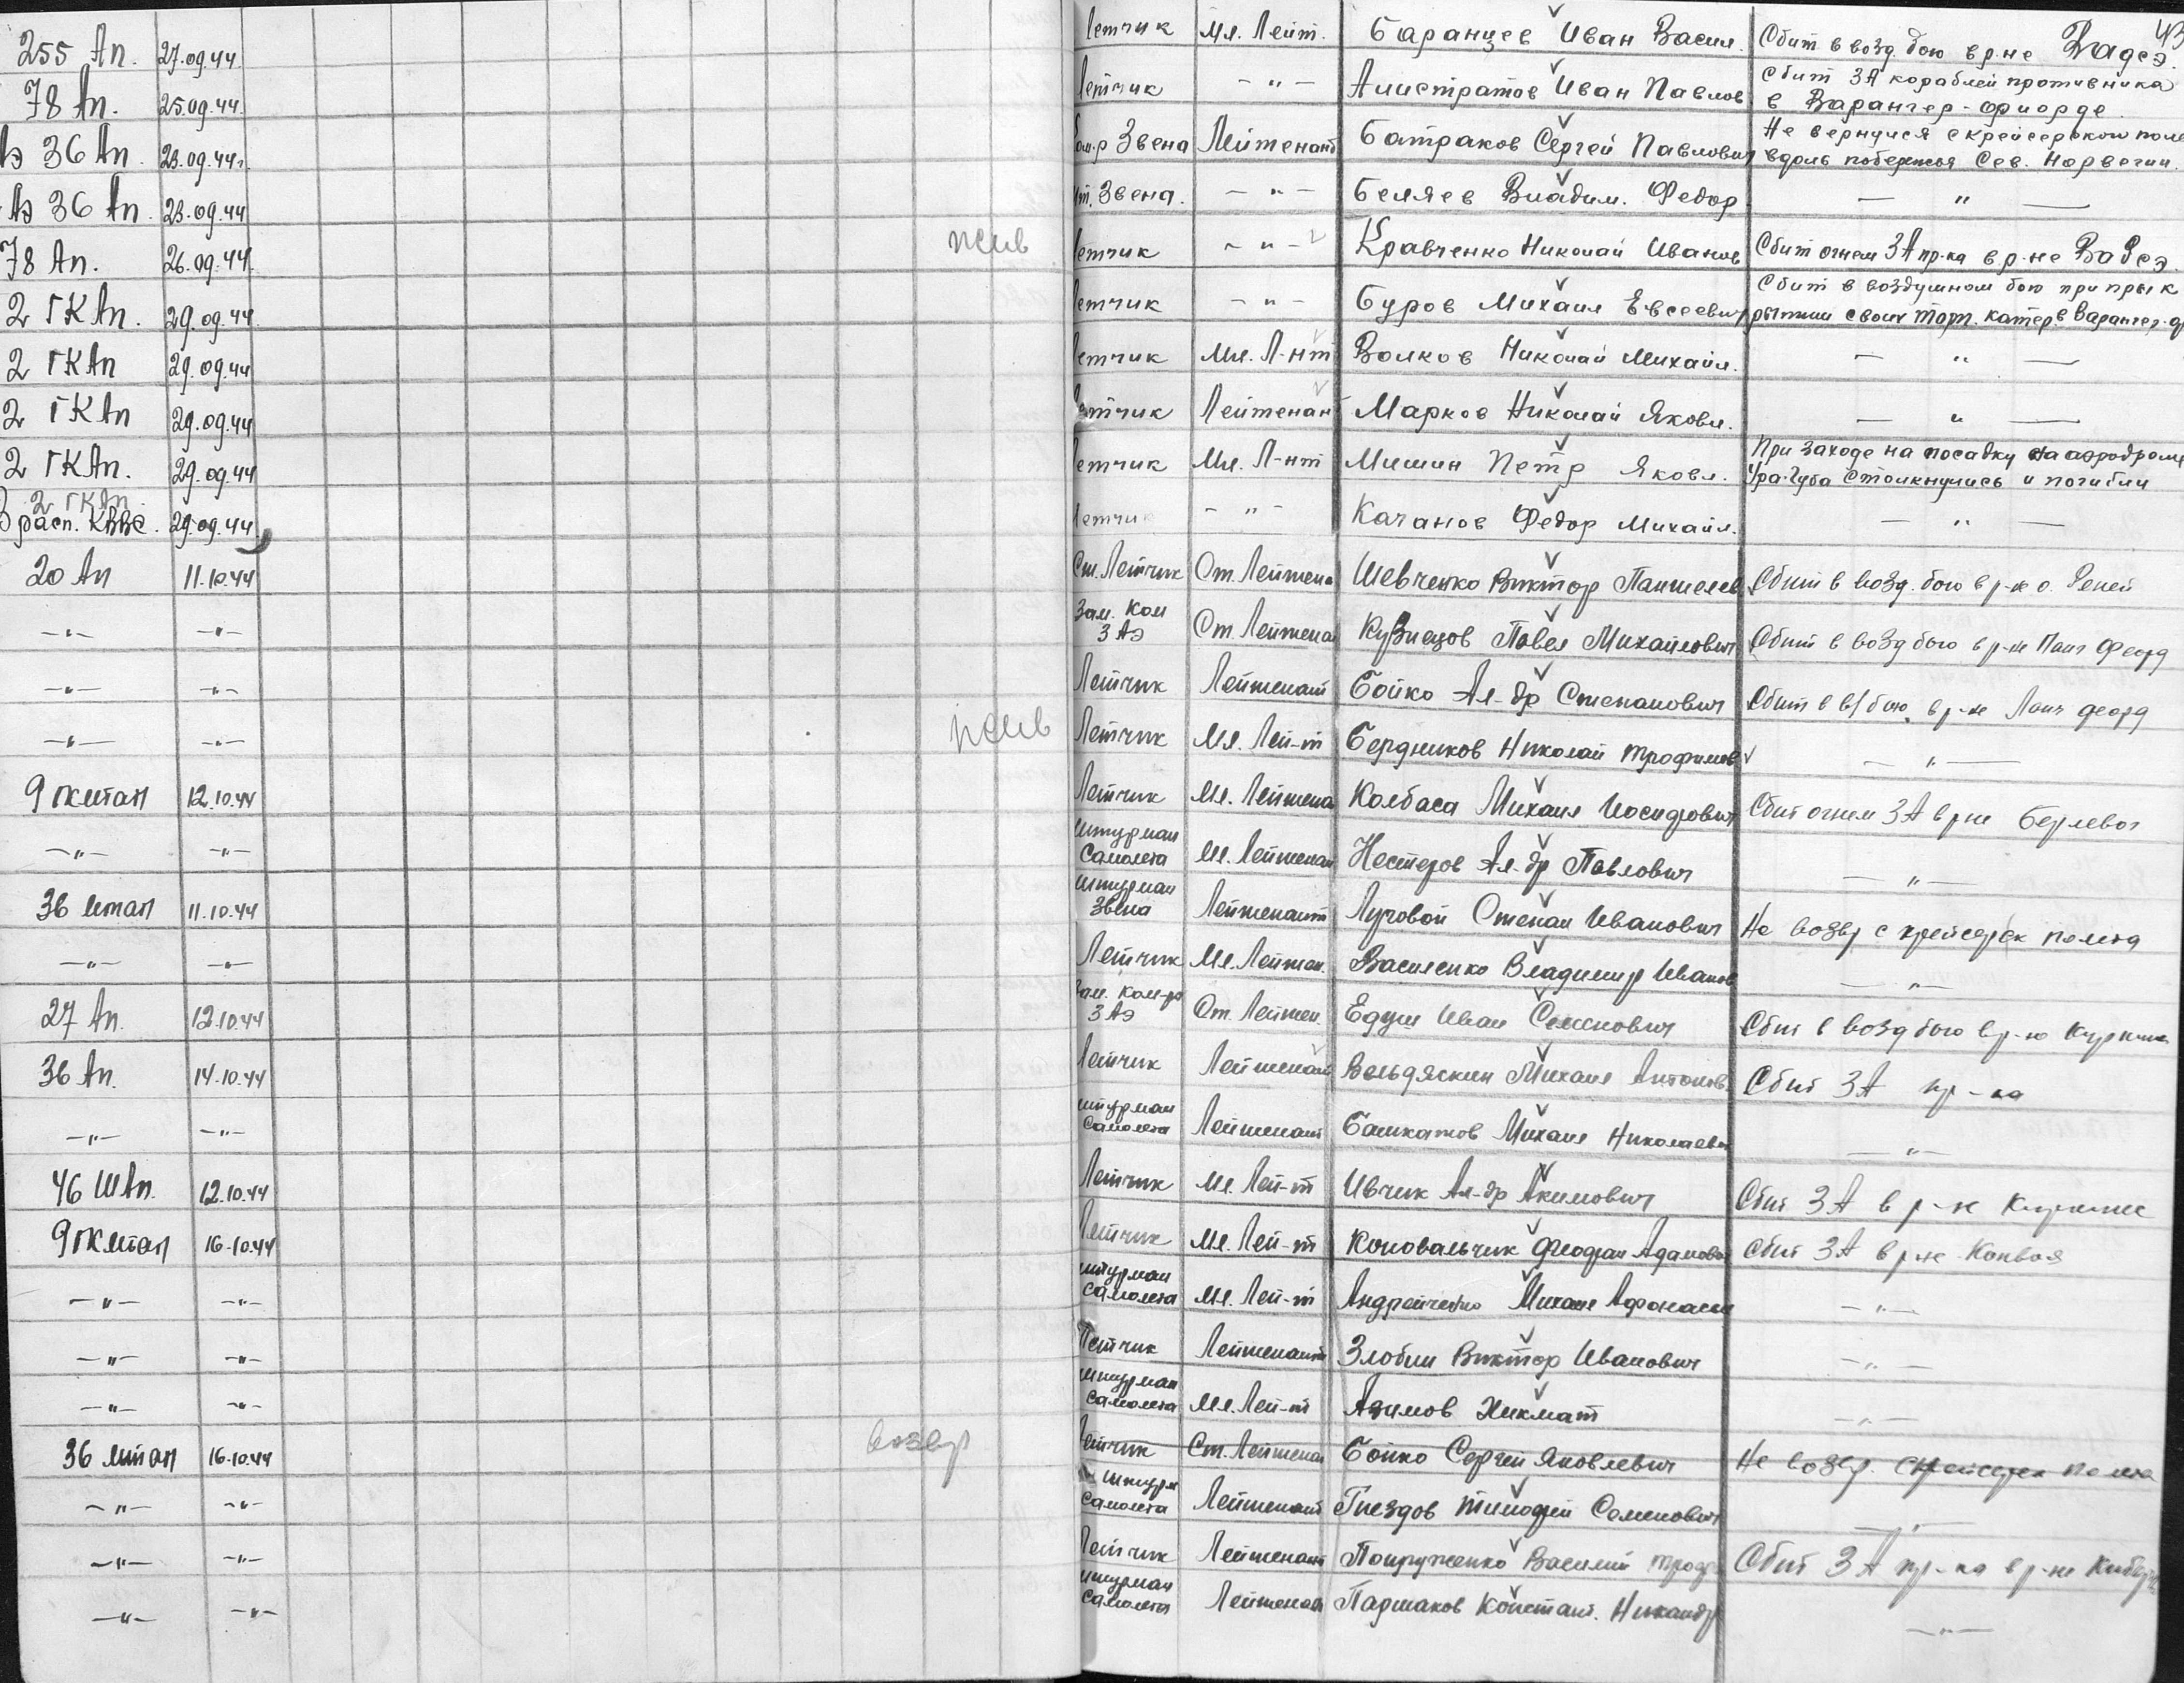 43
255 Ап. 27.09.44. Летчик Мл. Лейт. Баранцев Иван Васил. Сбит в возд. бою в р-не Вадсэ.
78 Ап. 25.09.44. Летчик - " - Алистратов Иван Павлов Сбит ЗА кораблей противника
в Варангер-фиорде.
Аэ 36 Ап. 23.09.44г. Ком-р Звена Лейтенант Батраков Сергей Павлович Не вернулся с крейсерском поле
вдоль побережья Сев. Норвегии.
Аэ 36 Ап. 23.09.44 Шт. Звена. - " - Беляев Владим. Федор — " —
78 Ап. 26.09.44. жив Летчик - " - Кравченко Николай Иванов Сбит огнем ЗА пр-ка в р-не Вадсэ.
2 ГКАп. 29.09.44. Летчик - " - Буров Михаил Евсеевич Сбит в воздушном бою при прык
рытии своих торп. катер. в Варангер-ф
2 ГКАп 29.09.44 Летчик Мл. Л-нт Волков Николай Михайл. — " —
2 ГКАп 29.09.44 Летчик Лейтенант Марков Николай Яковл. — " —
2 ГКАп. 29.09.44 Летчик Мл. Л-нт Мишин Петр Яковл. При заходе на посадку на аэродроме
Ура-Губа столкнулись и погибли
2 ГКАп.
В расп. КВВС. 29.09.44 Летчик - " - Качанов Федор Михайл. — " —
20 Ап 11.10.44 Ст. Летчик Ст. Лейтена Шевченко Виктор Пантелеев. Сбит в возд. бою в р-не о. Реней
—"— —"— Зам. Ком
3 Аэ Ст. Лейтенан Кузнецов Павел Михайлович Сбит в возд бою в р-не Фиорд
—"— —"— Летчик Лейтенант Бойко Ал-др Степанович Сбит в в/бою в р-не Ланг фиорд
—"— —"— жив Летчик Мл. Лей-т Бердников Николай Трофимов — " —
9 гкмтап 12.10.44 Летчик Мл. Лейтена Колбаса Михаил Иосифович Сбит огнем ЗА в р-не Берлевог
—"— —"— Штурман
Самолета Мл. Лейтенан Нестеров Ал-др Павлович — " —
36 мтап 11.10.44 Штурман
Звена Лейтенант Луговой Степан Иванович Не возвр с крейсерск полета
—"— —"— Летчик Мл. Лейтен. Василенко Владимир Иванов — " —
27 Ап. 12.10.44 Зам. Ком-ра
3 Аэ Ст. Лейтен. Едуш Иван Семенович Сбит в возд бою в р-не Киркинес
36 Ап. 14.10.44 Летчик Лейтенант Вельдяскин Михаил Антонов. Сбит ЗА пр-ка
—"— —"— Штурман
Самолета Лейтенант Башкатов Михаил Николаевич — " —
46 ШАп. 12.10.44 Летчик Мл. Лей-т Ивчик Ал-др Акимович Сбит ЗА в р-не Киркинес
9 гкмтап 16.10.44 Летчик Мл. Лей-т Коновальчик Феофан Адамович Сбит ЗА в р-не Конвоя
—"— —"— Штурман
Самолета Мл. Лей-т Андрейченко Михаил Афонасьев — " —
—"— —"— Летчик Лейтенант Злобин Виктор Иванович — " —
—"— —"— Штурман
Самолета Мл. Лей-т Азимов Хикмат — " —
36 мтап 16.10.44 возвр Летчик Ст. Лейтенан Бойко Сергей Яковлевич Не возвр. с крейсерск полета
—"— —"— Штурм
Самолета Лейтенант Гнездов Тимофей Семенович — " —
—"— —"— Летчик Лейтенант Попруженко Василий Троф Сбит ЗА пр-ка в р-не Киберг
—"— —"— Штурман
Самолета Лейтенант Паршаков Констант. Никандр — " —